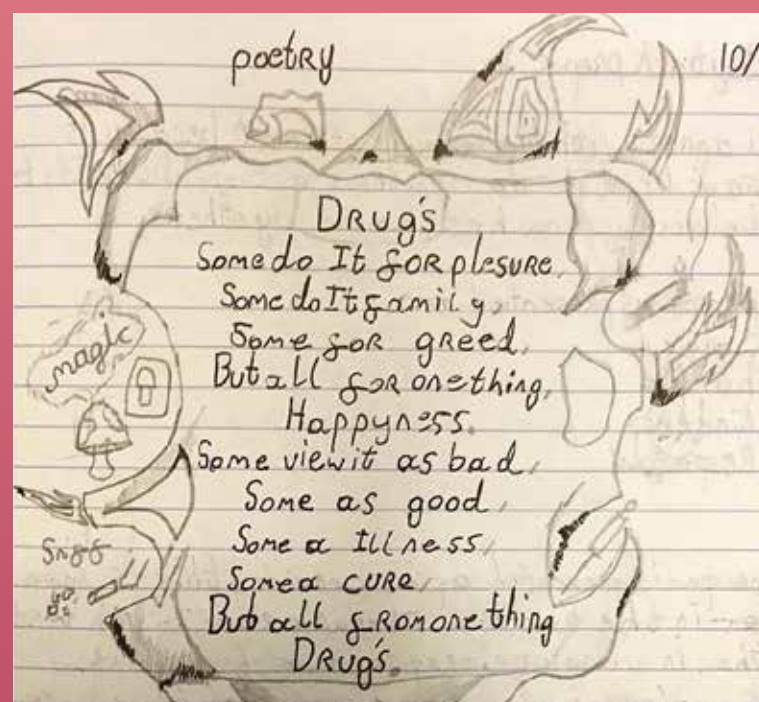 poetry
10/
Drug's
Some do It for plesure,
Some do It family,
Some for greed,
But all for one thing,
Happyness.
Some view it as bad,
Some as good,
Some a Illness,
Some a cure,
But all from one thing
Drug's.
magic
Sniff